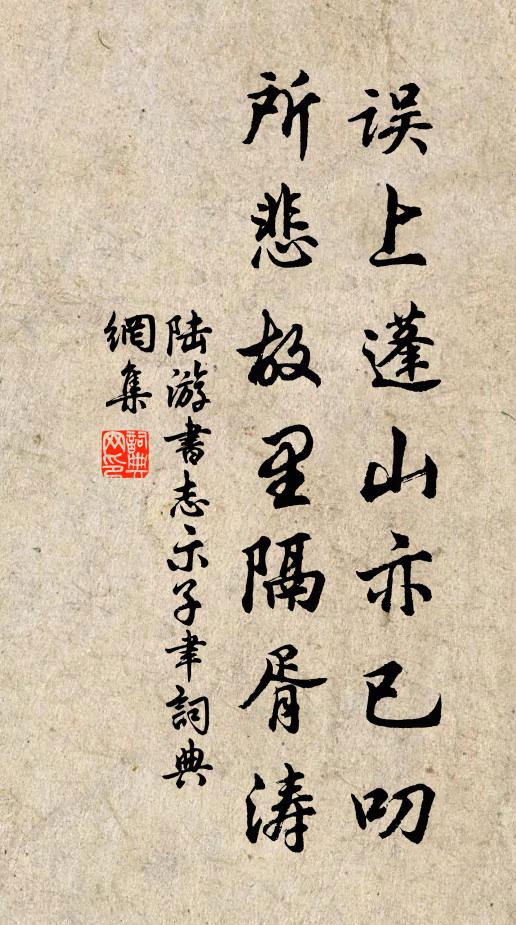 误上蓬山亦已叨
所悲故里隔胥涛
陆游书志示子聿詞典
網集
詞典
网印